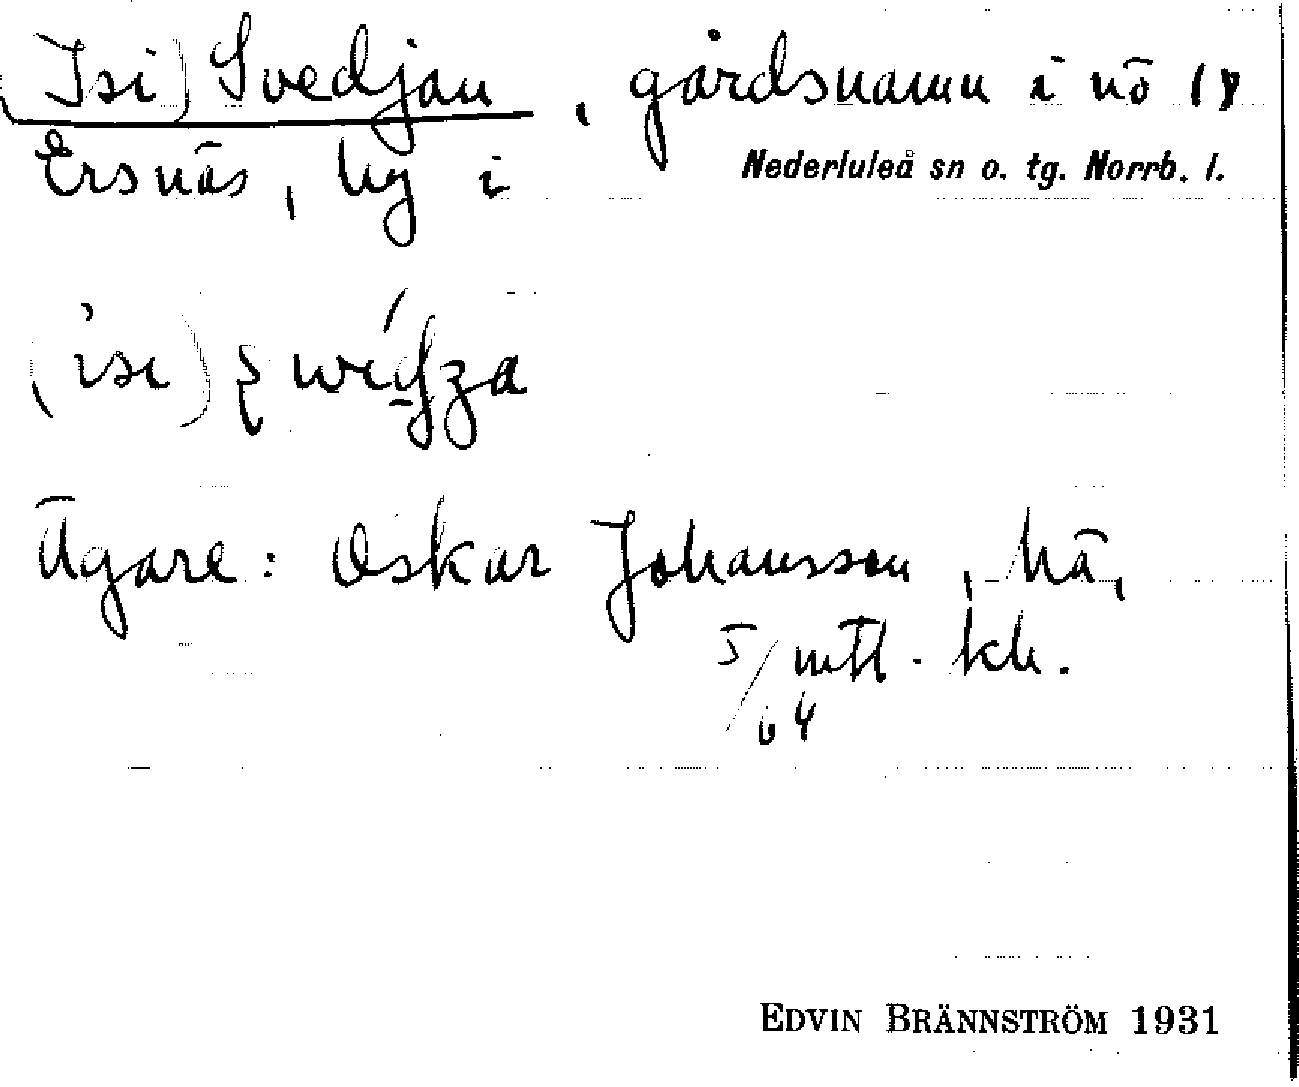 (Isi) Svedjan, gårdsnamn i nö 18
Ersnäs, by i Nederluleå sn o. tg. Norrb. l.
(isi)
Ägare: Oskar Johansson, hä,
5/64 mtl. kh.
EDVIN BRÄNNSTRÖM 1931